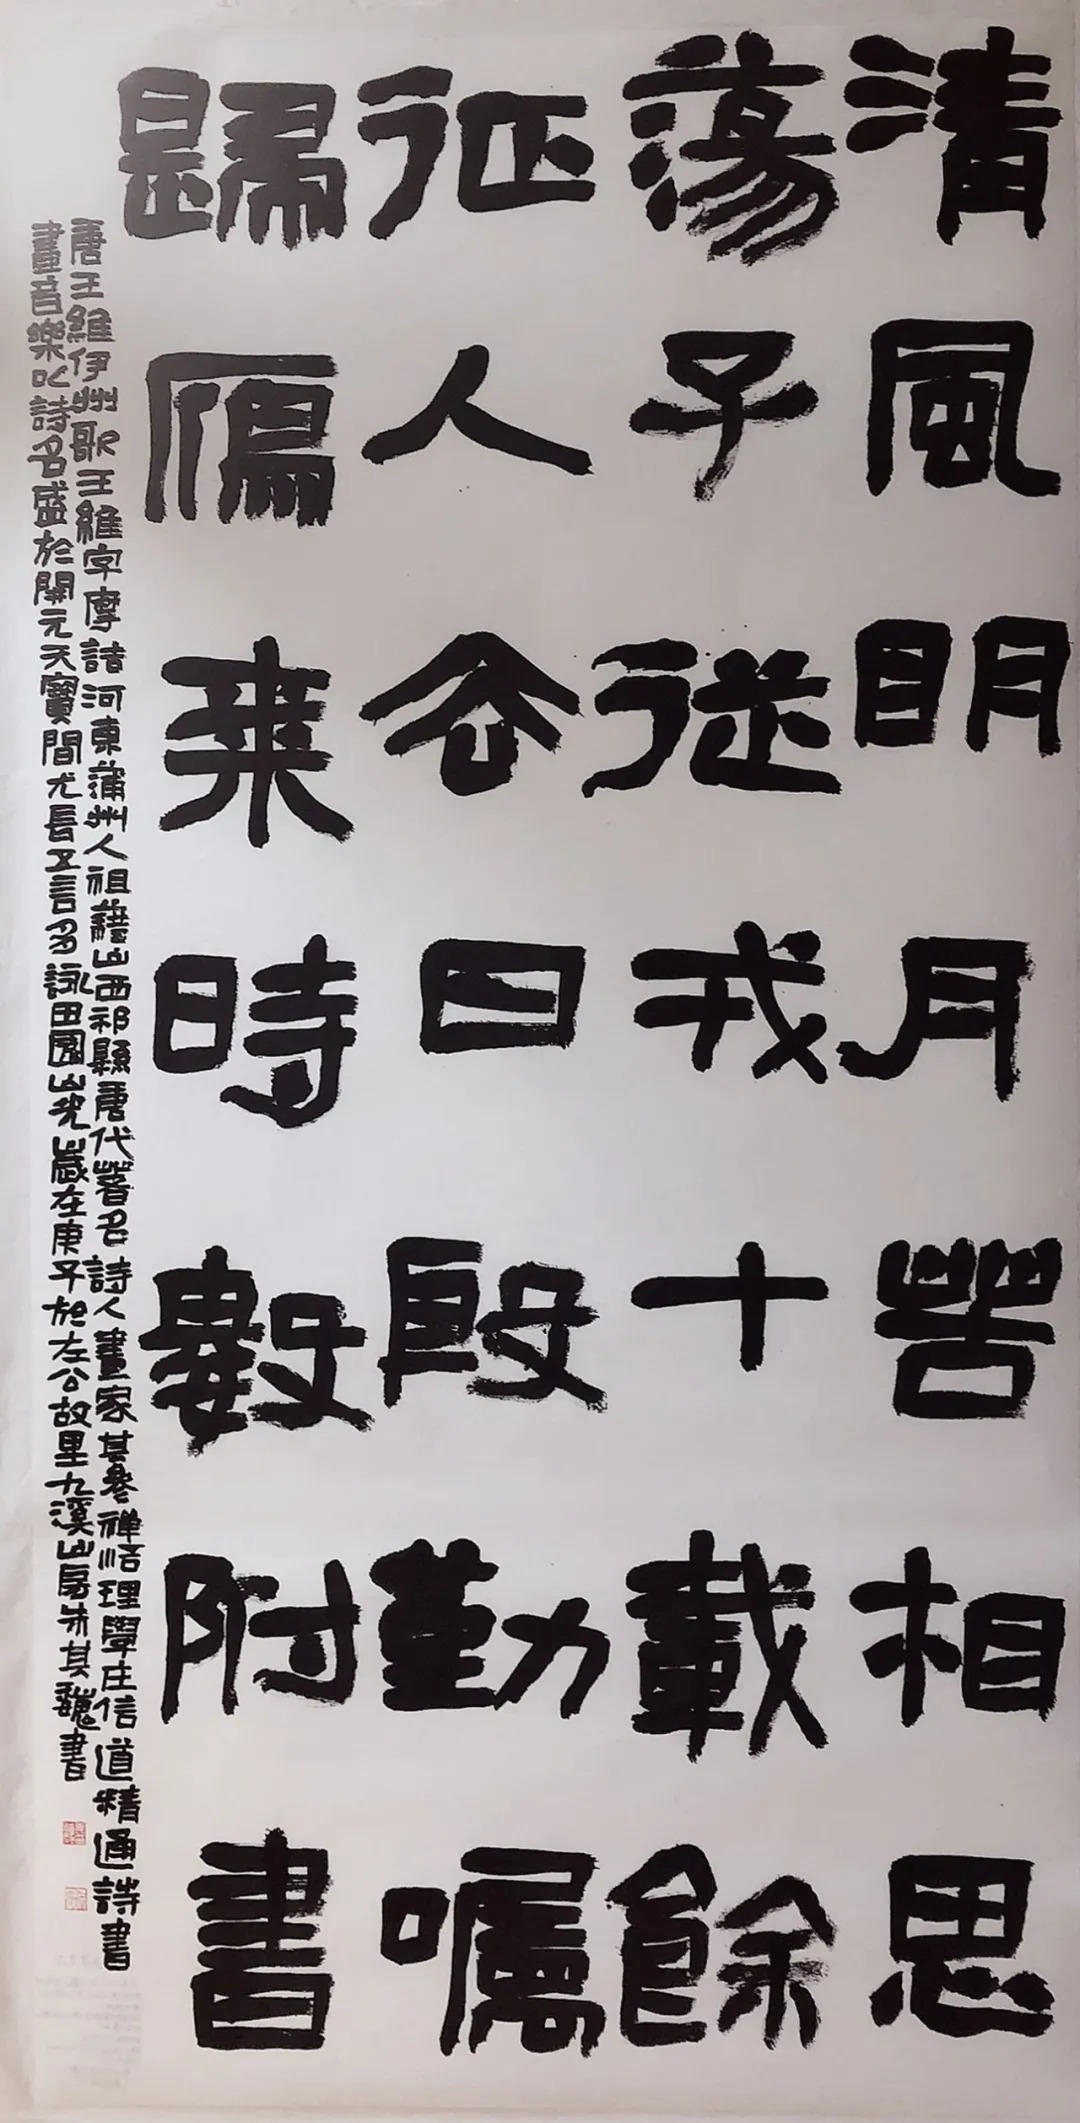 清風眀月苦相思
蕩子從戎十載餘
征人去日殷勤囑
歸鴈来時數附書
唐王維伊州歌王維字摩詰河東蒲州人祖籍山西祁縣唐代著名詩人畫家其參禪悟理學庄信道精通詩書
畫音樂以詩名盛於開元天寶間尤長五言多詠田園山歲在庚子於左公故里九溪山房朱其巍書